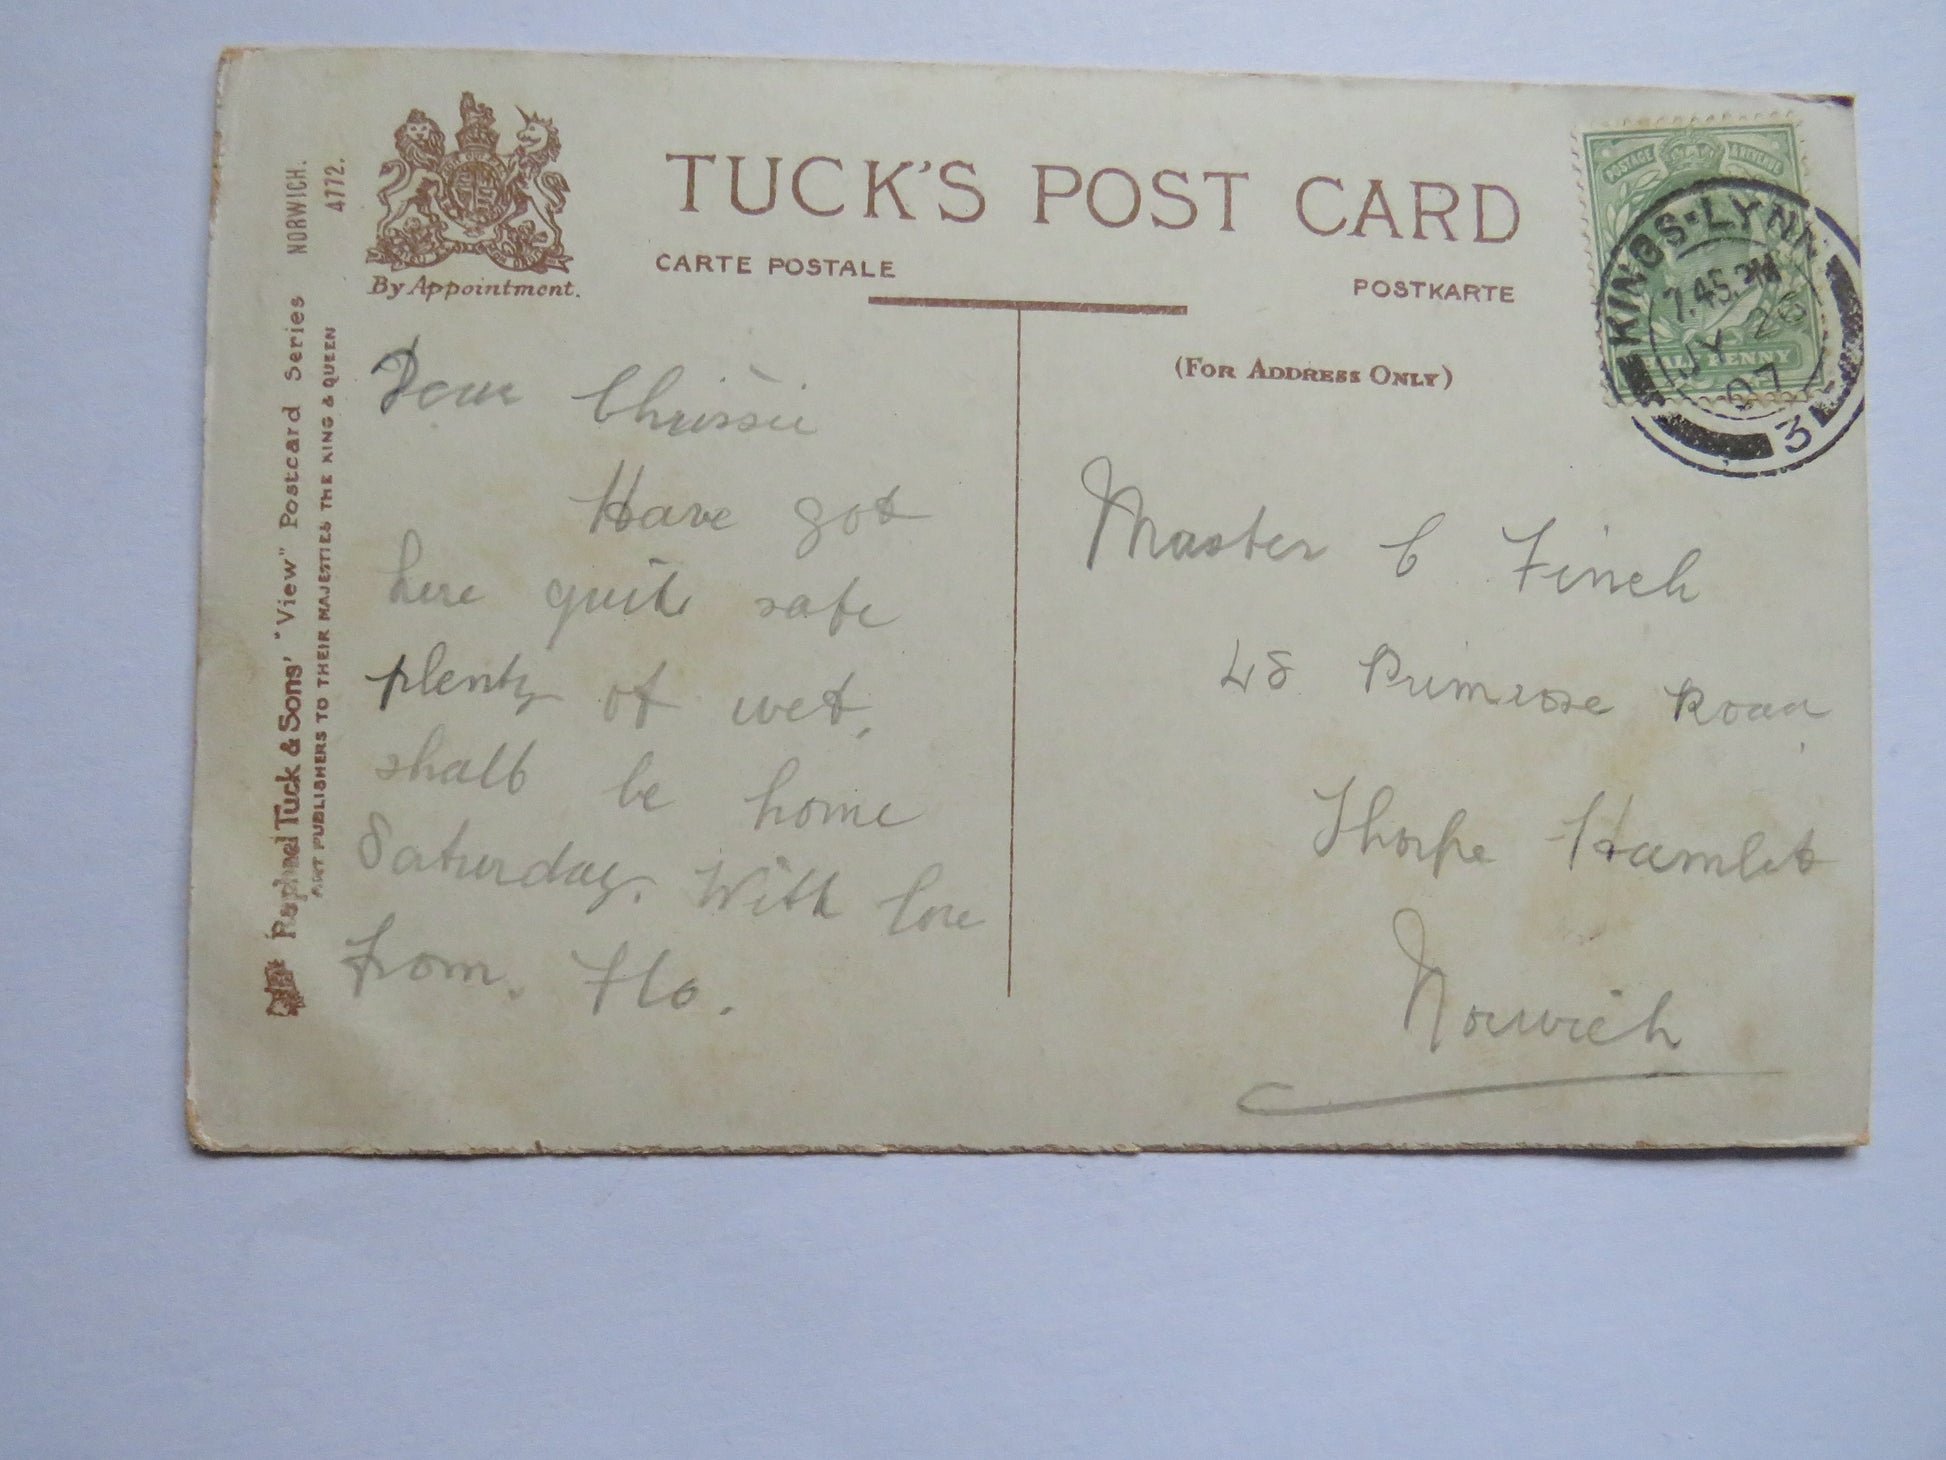 TUCK'S POST CARD
By Appointment.
CARTE POSTALE
POSTKARTE
(FOR ADDRESS ONLY)
Raphael Tuck & Sons' "View" Postcard Series NORWICH.
ART PUBLISHERS TO THEIR MAJESTIES THE KING & QUEEN 4772.
POSTAGE REVENUE
HALF PENNY
KINGS-LYNN
7.45.PM
JY 26
07
3
Dear Chrissie
Have got
here quite safe
plenty of wet,
shall be home
Saturday. With love
from. Flo.
Master C Finch
48 Primrose Road
Thorpe Hamlet
Norwich